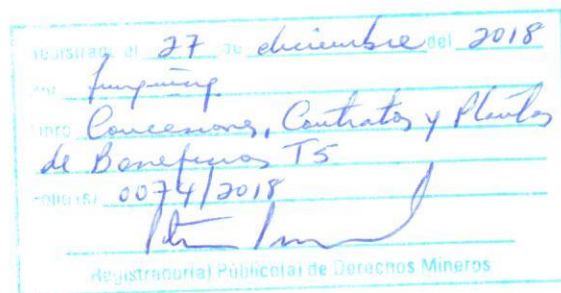 registrado el 27 de diciembre del 2018
Concesiones, Contratos y Plantas
de Beneficios T5
Folio(s) 0074/2018
Registrador(a) Público(a) de Derechos Mineros